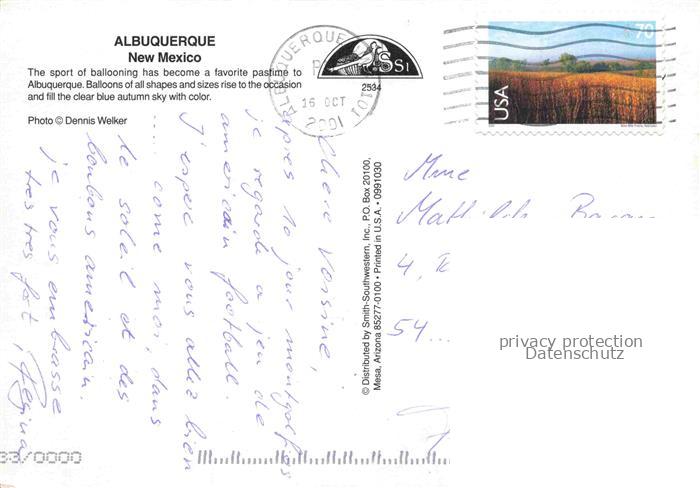 ALBUQUERQUE
New Mexico
The sport of ballooning has become a favorite pastime to
Albuquerque. Balloons of all shapes and sizes rise to the occasion
and fill the clear blue autumn sky with color.
Photo © Dennis Welker
ALBUQUERQUE
16 OCT
2001
SSI
2534
70
USA
Chere Voisine,
Apres 10 jour montgolfies
je regarde a jeu de
americain football.
J'espere vous allez bien
.... come moi, dans
le soleil et des
bonbons americain.
je vous embrasse
tres tres fort, Regina
© Distributed by Smith-Southwestern, Inc., P.O. Box 20100,
Mesa, Arizona 85277-0100 • Printed in U.S.A. • 0991030
Mme
4,
54...
privacy protection
Datenschutz
33/0000